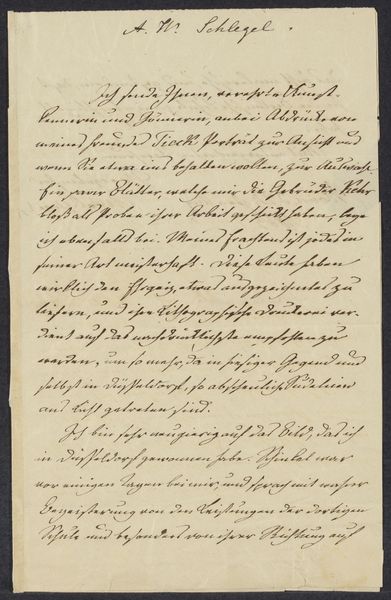 A. W. Schlegel.
Ich sende Ihnen, verehrte Kunst-
kennerin und Gönnerin, zwei Abdrücke von
meines Freundes Tieck Porträt zur Ansicht und
wenn Sie etwa eins behalten wollen, zur Auswahl.
Ein paar Blätter, welche mir die Gebrüder
bloß als Proben ihrer Arbeit geschickt haben, lege
ich ebenfalls bei. Meines Erachtens ist jedes in
seiner Art meisterhaft. Diese Leute haben
wirklich den Ehrgeiz etwas ausgezeichnetes zu
liefern, und ihre lithographische Druckerei ver-
dient auf das nachdrücklichste empfohlen zu
werden, um so mehr, da in hiesiger Gegend und
selbst in Düsseldorf, so abscheuliche Sudeleien
ans Licht getreten sind.
Ich bin sehr neugierig auf das Bild, das ich
in Düsseldorf gewonnen habe. Schinkel war
vor einigen Tagen bei mir, und sprach mit wahrer
Begeisterung von den Leistungen der dortigen
Schule und besonders von ihrer Richtung auf